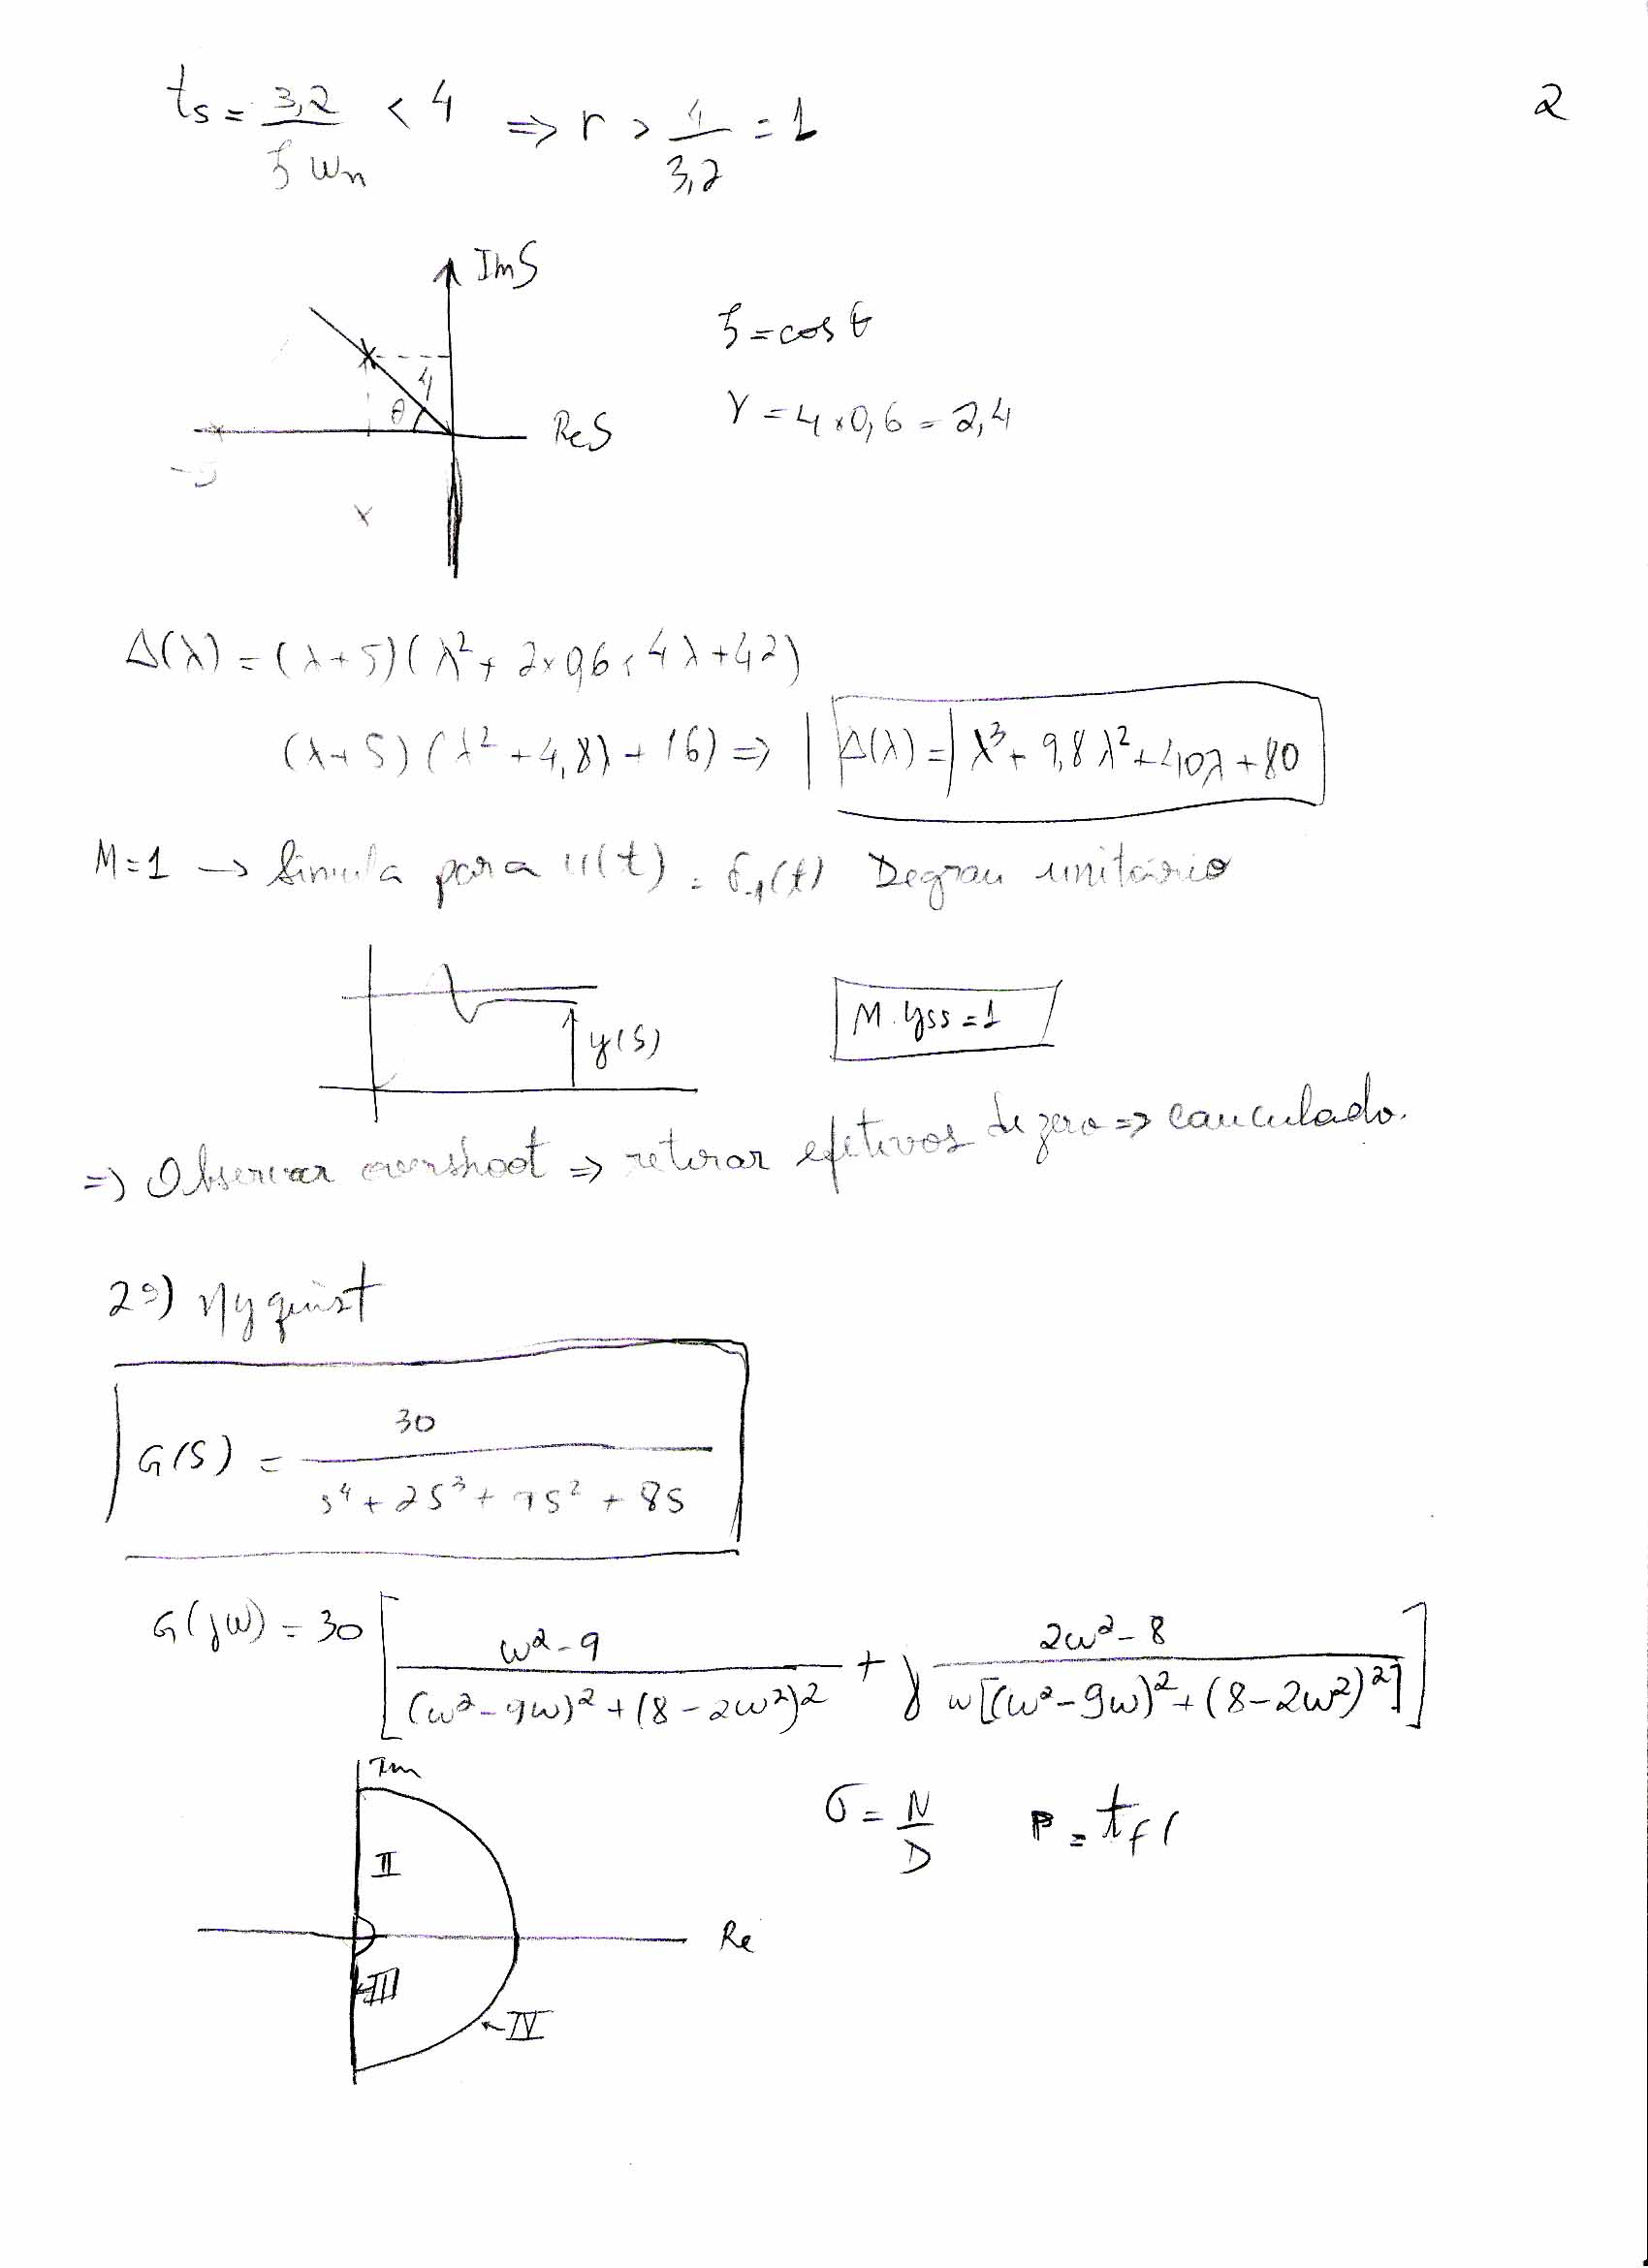 2
ts = 3,2 / ζ ωn < 4 ⇒ r > 4 / 3,2 = 1
Im S
4
θ
Re S
-5
x
ζ = cos θ
r = 4 x 0,6 = 2,4
Δ(λ) = (λ + 5)(λ² + 2x 0,6 x 4λ + 42)
(λ + 5)(λ² + 4,8λ + 16) ⇒ | Δ(λ) = | λ³ + 9,8 λ² + 40λ + 80
M=1 → Simula para u(t) = δ-1(t) Degrau unitário
y(S)
M. yss = 1
⇒ Observar overshoot ⇒ retirar efetivos de zero ⇒ cauculado.
2º) Nyquist
G(S) = 30 / s⁴ + 2S³ + 9S² + 8S
G(jω) = 30 [ ω² - 9 / (ω² - 9ω)² + (8 - 2ω²)² + j 2ω² - 8 / ω[(ω² - 9ω)² + (8 - 2ω²)²] ]
Im
II
Re
III
← IV
σ = N / D P = tf(